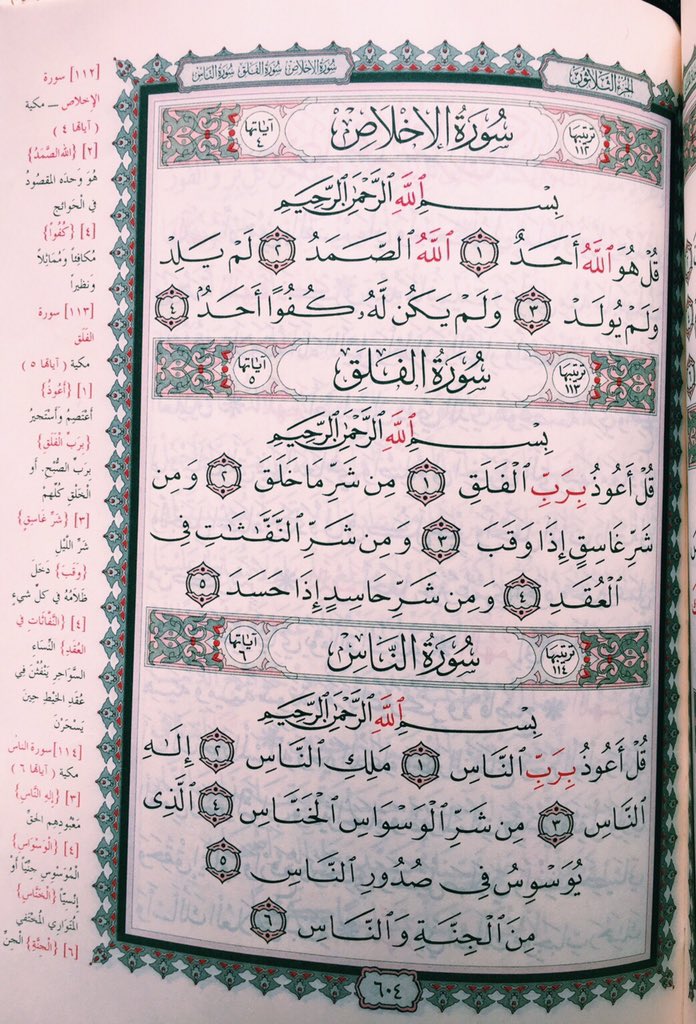 الجزء الثلاثون
سورة الإخلاص سورة الفلق سورة الناس
ترتيبها ١١٢
سُورَةُ الإِخْلَاصِ
آياتها ٤
بِسْمِ ٱللَّهِ ٱلرَّحْمَٰنِ ٱلرَّحِيمِ
قُلْ هُوَ ٱللَّهُ أَحَدٌ ١ ٱللَّهُ ٱلصَّمَدُ ٢ لَمْ يَلِدْ
وَلَمْ يُولَدْ ٣ وَلَمْ يَكُن لَّهُۥ كُفُوًا أَحَدٌۢ ٤
ترتيبها ١١٣
سُورَةُ الفَلَقِ
آياتها ٥
بِسْمِ ٱللَّهِ ٱلرَّحْمَٰنِ ٱلرَّحِيمِ
قُلْ أَعُوذُ بِرَبِّ ٱلْفَلَقِ ١ مِن شَرِّ مَا خَلَقَ ٢ وَمِن
شَرِّ غَاسِقٍ إِذَا وَقَبَ ٣ وَمِن شَرِّ ٱلنَّفَّٰثَٰتِ فِى
ٱلْعُقَدِ ٤ وَمِن شَرِّ حَاسِدٍ إِذَا حَسَدَ ٥
ترتيبها ١١٤
سُورَةُ النَّاسِ
آياتها ٦
بِسْمِ ٱللَّهِ ٱلرَّحْمَٰنِ ٱلرَّحِيمِ
قُلْ أَعُوذُ بِرَبِّ ٱلنَّاسِ ١ مَلِكِ ٱلنَّاسِ ٢ إِلَٰهِ
ٱلنَّاسِ ٣ مِن شَرِّ ٱلْوَسْوَاسِ ٱلْخَنَّاسِ ٤ ٱلَّذِى
يُوَسْوِسُ فِى صُدُورِ ٱلنَّاسِ ٥
مِنَ ٱلْجِنَّةِ وَٱلنَّاسِ ٦
٦٠٤
[١١٢] سورة
الإخلاص – مكية
(آياتها ٤)
[٢] {اللهُ الصَّمَدُ}
هُوَ وَحدَه المقصُودُ
في الحَوائج
[٤] {كُفُواً}
مُكافِئاً وَمُمَاثِلاً
ونَظيراً
[١١٣] سورة
الفَلَق
مكية (آياتها ٥)
[١] {أَعُوذُ}
أَعْتَصِمُ وَأَسْتَجيرُ
{بِرَبّ الْفَلَقِ}
بربّ الصُّبْحِ. أو
الخَلْق كُلِّهِمْ
[٣] {شَرّ غَاسِقٍ}
شَرّ اللَّيْلِ
{وَقَبَ} دَخَلَ
ظَلامُهُ في كل شيءٍ
[٤] {النَّفَّاثَات في
العُقَدِ} النِّسَاءِ
السَّوَاحِرِ يَنْفُثْنَ فِي
عُقَدِ الخَيْطِ حِينَ
يَسْحَرْنَ
[١١٤] سورة الناس
مكية (آياتها ٦)
[٣] {إلهِ النَّاسِ}
مَعْبُودِهِم الحَقّ
[٤] {الْوَسْوَاسِ}
المُوَسْوِسِ جِنّيّاً أَوْ
إِنْسِيّاً {الخَنَّاسِ}
المُتَوَارِي المُخْتَفِي
[٦] {الْجِنَّةِ} الجِنّ